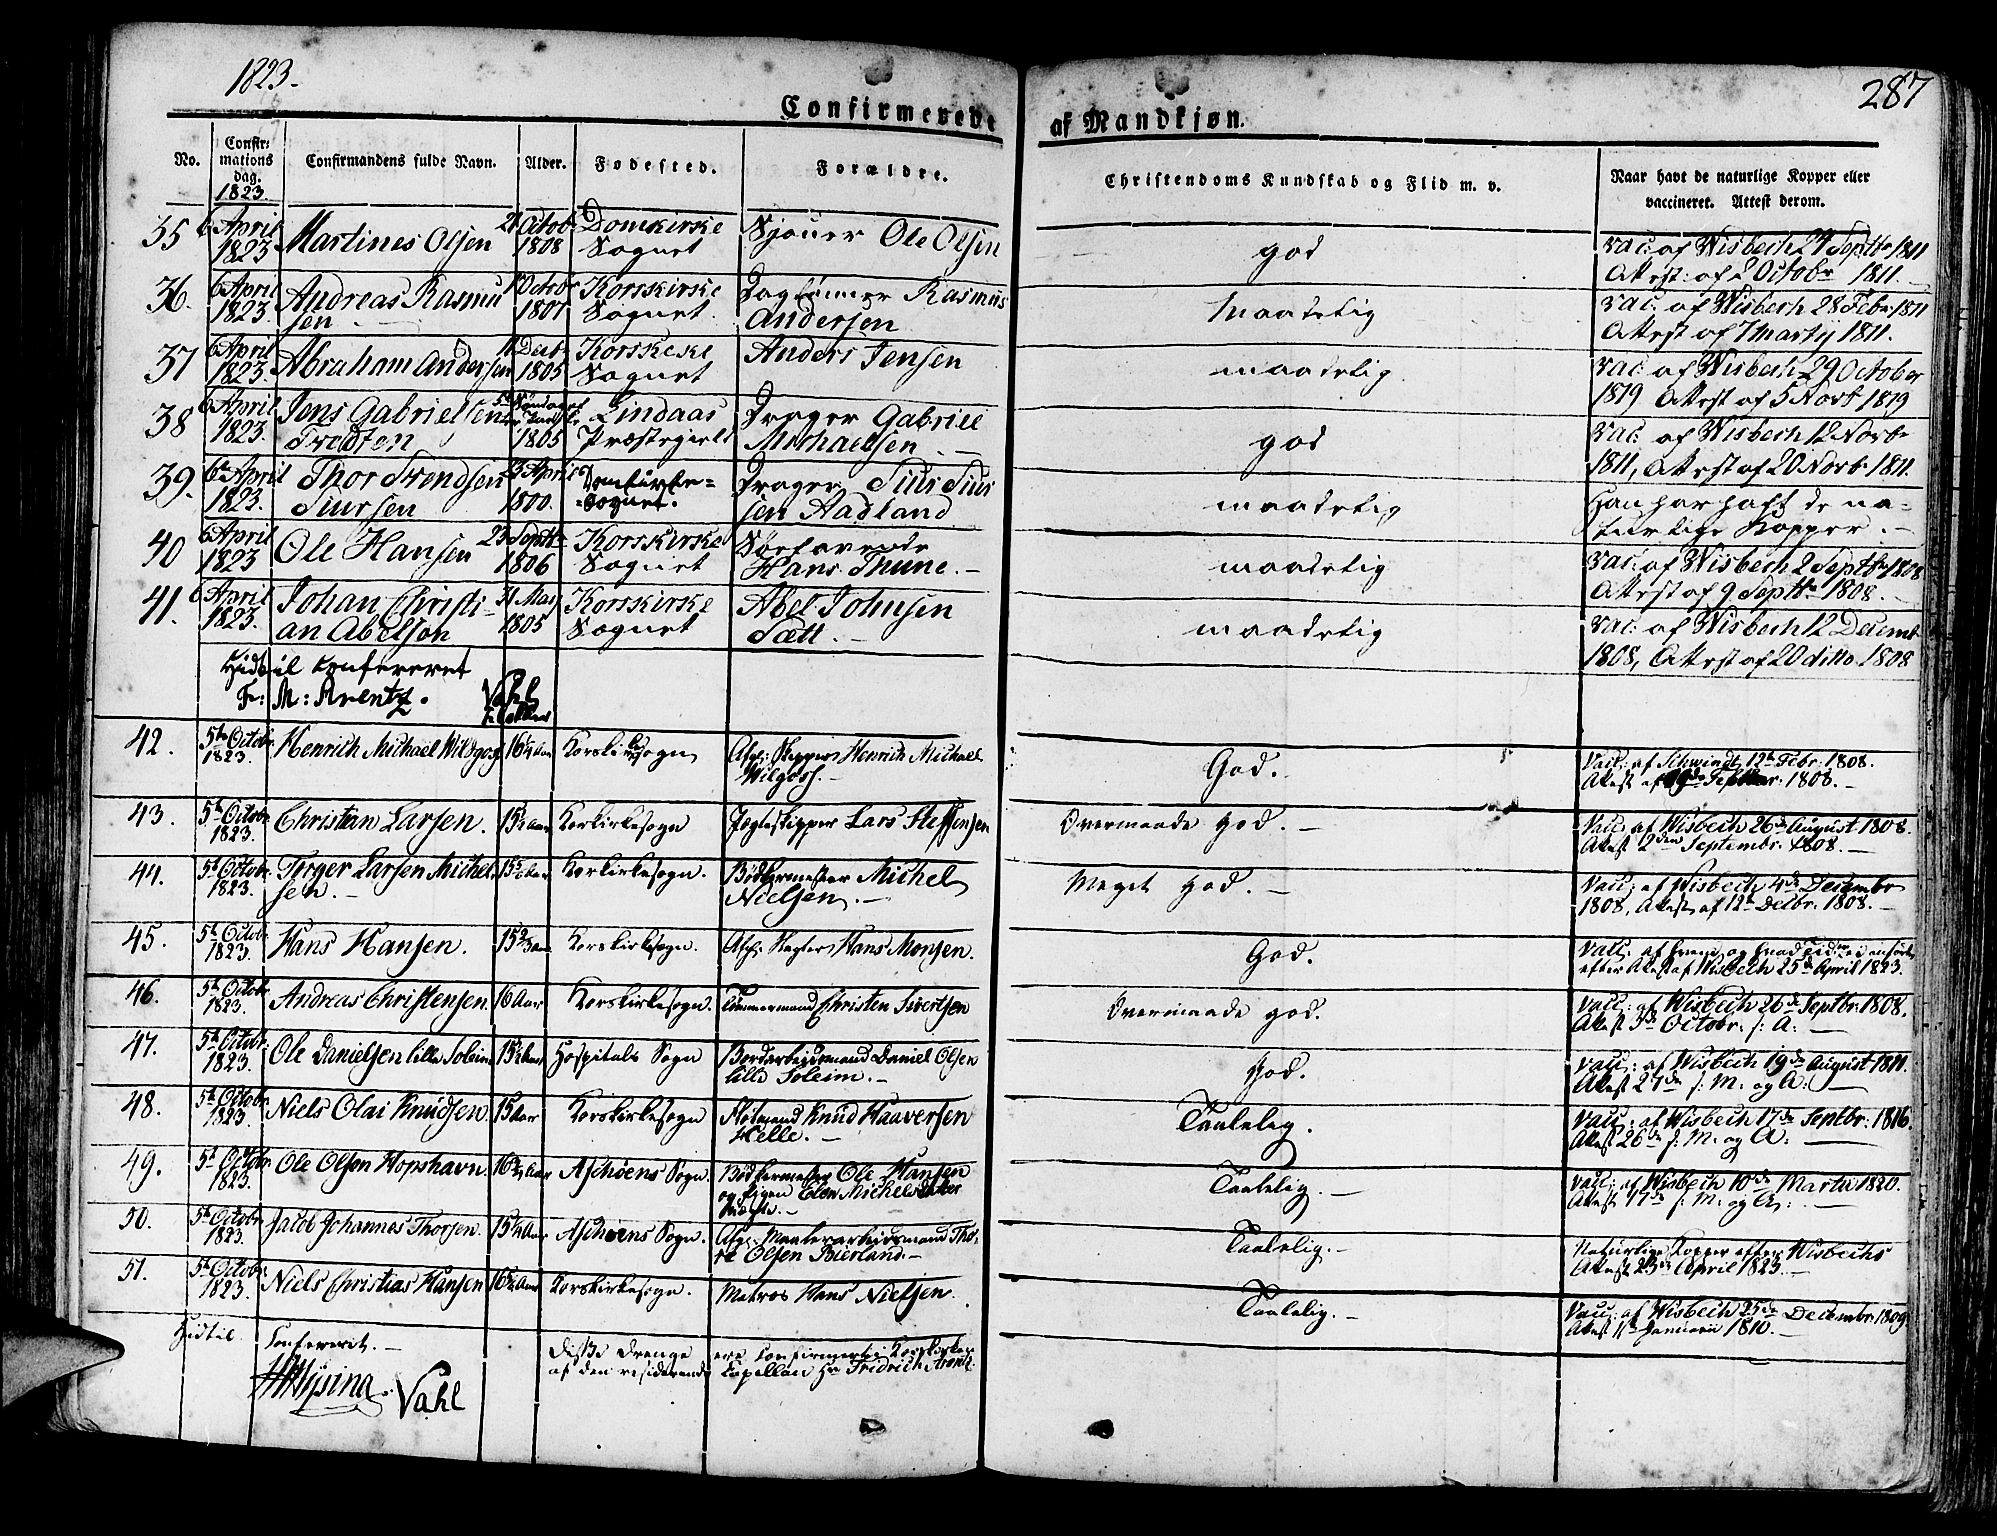 1823.
287
Confirmerede af Mandkjøn.
No.
Confir=
mations
dag.
1823.
Confirmandens fulde Navn.
Alder.
Fødested.
Forældre.
Christendoms Kundskab og Flid m. v.
Naar havt de naturlige Kopper eller
vaccineret. Attest derom.
35 6 April 1823 Martines Olsen 21 Octob: 1808 Domkirke Sognet Sjouer Ole Olsen god vac: af Wisbech 24 Septbr 1811
Attest: af 2 Octobr 1811.
36. 6 April 1823. Andreas Rasmu
sen 1807 Korskirke Sognet. Dagлønner Rasmus
Andersen maadelig vac: af Wisbech 28 Febr 1811
Attest af 7 Martij 1811.
37 6 April 1823. Abraham Andersen 11 Decb. 1805 Korskirke Sognet Anders Jensen maadelig vac: af Wisbech 29 October
1819 Attest af 5 Novb 1819
38 6 April 1823. Jens Gabrielsen
1805 Lindaas Præstegield Drager Gabriel
Michaelsen god vac: af Wisbech 12 Novbr
1811, Attest af 20 Novb. 1811.
39. 6 April 1823. Thor Trendsen
Siursen 23 April 1800. Domkirke=
Sognet. Drager Siur Siur
sen Aadland maadelig Han har haft de na=
turlige Kopper.
40 6 April 1823 Ole Hansen 23 Septbr 1806 Korskirke Sognet Søefarende
Hans Thune. maadelig vac: af Wisbech 2 Septbr 1808
Attest af 9 Septbr 1808.
41. 6 April 1823. Johan Christi=
an Abelson 31 Maj 1805 Korskirke Sognet Abel Johnsen
Sætt. maadelig vac: af Wisbech 12 Decemb
1808, Attest af 20 ditto 1808
Hidtil Confereret
Fr: M: Arentz. Vahl
Klokker
42. 5te Octobr 1823. Henrich Michael Wilgoss 16 1/4 Aar Korskirkesogn Afg: Skipper Henrich Michael
Wilgoss. God. Vacc: af Schwindt 12te Febr. 1808.
Attest af 1808.
43. 5te Octobr 1823. Christian Larsen. 15 1/2 Aar Korskirkesogn Jægteskipper Lars Steffensen Overmaade god. Vacc: af Wisbech 26de August 1808.
Attest 12den Septembr. 1808.
44. 5te Octobr 1823. Torger Larsen Michel
sen. Korskirkesogn. Bødkermester Michel
Nielsen. Meget god. Vacc: af Wisbech 4de Decembr
1808, Attest af 12te Decbr. 1808.
45. 5te Octobr 1823. Hans Hansen. 15 2/3 Aar Korskirkesogn. Afg: Vægter Hans Monsen. God. Vacc: af hvem og hvad Tid
efter Attest af Wisbech 25de April 1823.
46. 5te Octobr 1823. Andreas Christensen. 16 Aar Korskirkesogn. Tømmermand Christen Sivertsen Overmaade god. Vacc: af Wisbech 26de Septbr. 1808.
Attest 3de Octobr. s: A:
47. 5te Octobr 1823. Ole Danielsen lille Soleim 15 1/2 Aar Hospitals Sogn Bordarbeidsmand Daniel Olsen
lille Soleim. God. Vacc: af Wisbech 19de August 1811.
Attest 27de s: M: og A:
48. 5te Octobr 1823. Niels Olai Knudsen. 15 Aar Korskirkesogn. Flotmand Knud Haaversen
Helle. Taalelig. Vacc: af Wisbech 17de Septbr. 1816.
Attest 26de s: M: og A:
49. 5te Octobr 1823. Ole Olsen Hopshavn. 16 1/2 Aar Aschøens Sogn. Bødkermester Ole Hansen
og Pigen Elen Michelsdatter Taalelig. Vacc: af Wisbech 10de Martii 1820.
Attest 17de s: M: og A:
50. 5te Octobr 1823. Jacob Johannes Thorsen. 15 1/4 Aar Aschøens Sogn. Afg: Muurarbeidsmand Tho=
re Olsen Bierland. Taalelig. Naturlige Kopper efter Wisbechs
Attest 23de April 1823.
51. 5te Octobr 1823. Niels Christias Hansen 16 1/2 Aar Korskirkesogn. Matros Hans Nielsen. Taalelig. Vacc: af Wisbech 25de Decembr. 1809
Attest 11te Januarii 1810.
Hidtil Confereret.
Vahl
Disse Drenge ere Confirmerte i Korskirken
af den residerende Capellan Hr Fridrich Arentz